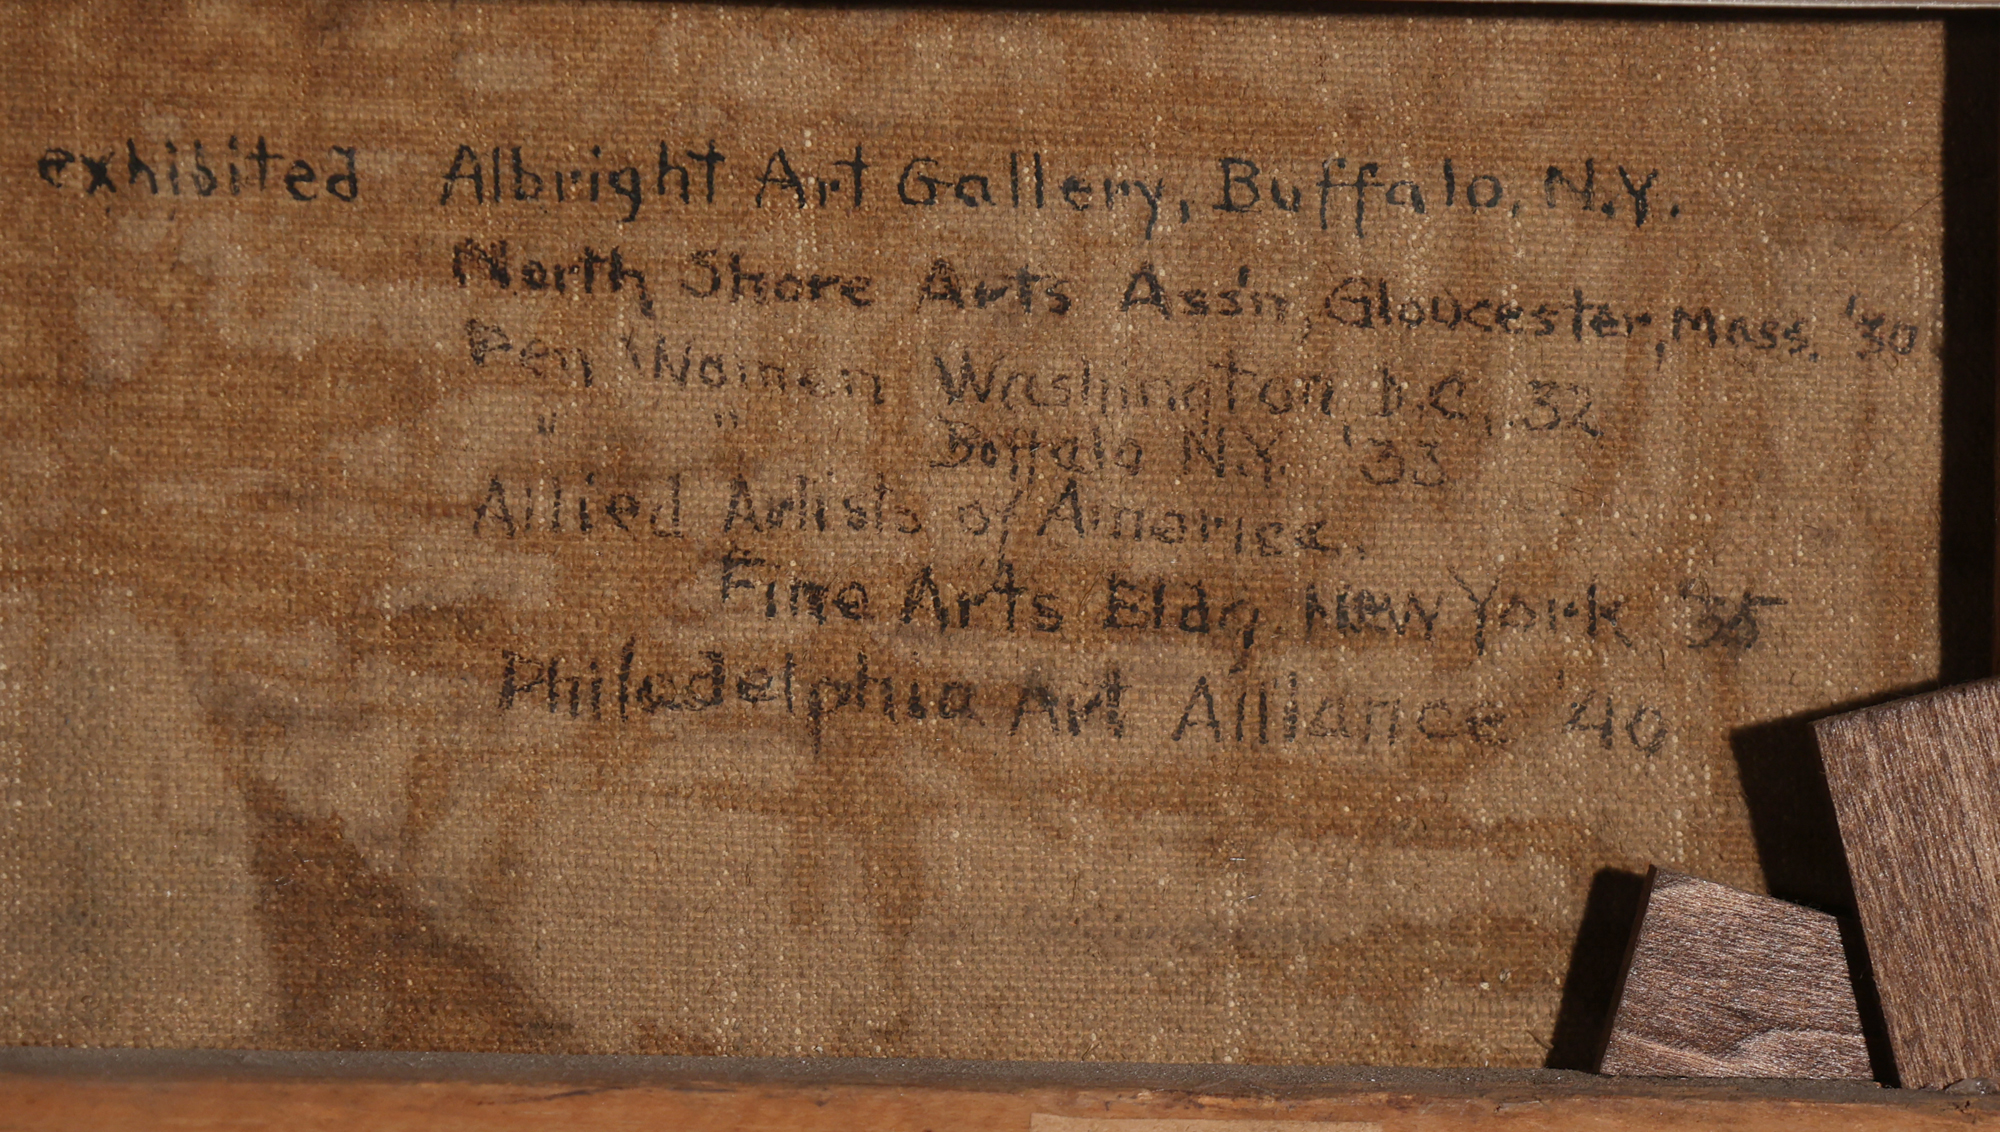 exhibited Albright Art Gallery, Buffalo, N.Y.
North Shore Arts Ass'n, Gloucester, Mass. '30.
Pen Women Washington D.C. '32
" " Buffalo N.Y. '33
Allied Artists of America,
Fine Arts Bldg. New York '35
Philadelphia Art Alliance '40